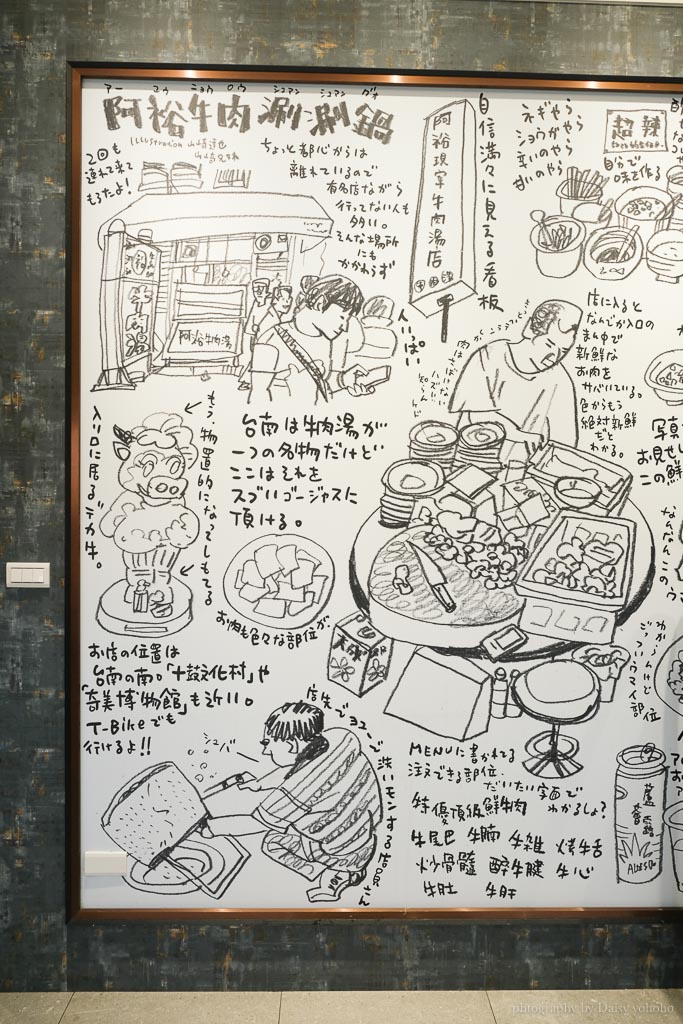 アー ユウ ニョウ ロウ シュアン シュアン グオ
阿裕牛肉涮涮鍋
Illustration 山崎達也
2回も
連れて来て
もろたよ!
ちょっと都心からは
離れているので
有名店ながら
行ってない人も
多い。
そんな場所
にも
かかわらず
人いっぱい
阿裕牛肉湯
阿裕現宰牛肉湯店
自信満々に見える看板
ネギやら
ショウガやら
辛いのやら
甘いのやら
超辣
自分で
味を作る
店に入ると
なんでか入口の
まん中で
新鮮な
お肉を
サバいている。
色からもう
絶対新鮮
だと
わかる。
写真
お見せし
この鮮
入り口に居るデカ牛。
もう、物置的になってしもてる
台南は牛肉湯が
一つの名物だけど
ここはそれを
スゴいゴージャスに
頂ける。
お肉も色々な部位が。
お店の位置は
台南の南。「十鼓文化村」や
「奇美博物館」も近い。
T-Bikeでも
行けるよ!!
店先でヨユーで
洗いモンする店員さん
シュバー
なんなんこのウ
わからんけど
ごっついウマイ部位
MENUに書かれてる
注文できる部位、
だいたい字面で
わかるしょ?
特優頂級鮮牛肉
牛尾巴 牛腩 牛雑 烤牛舌
炒骨髓 醉牛腱 牛心
牛肚 牛肝
蘆薈露
ALOESO
photography by Daisy yohoho